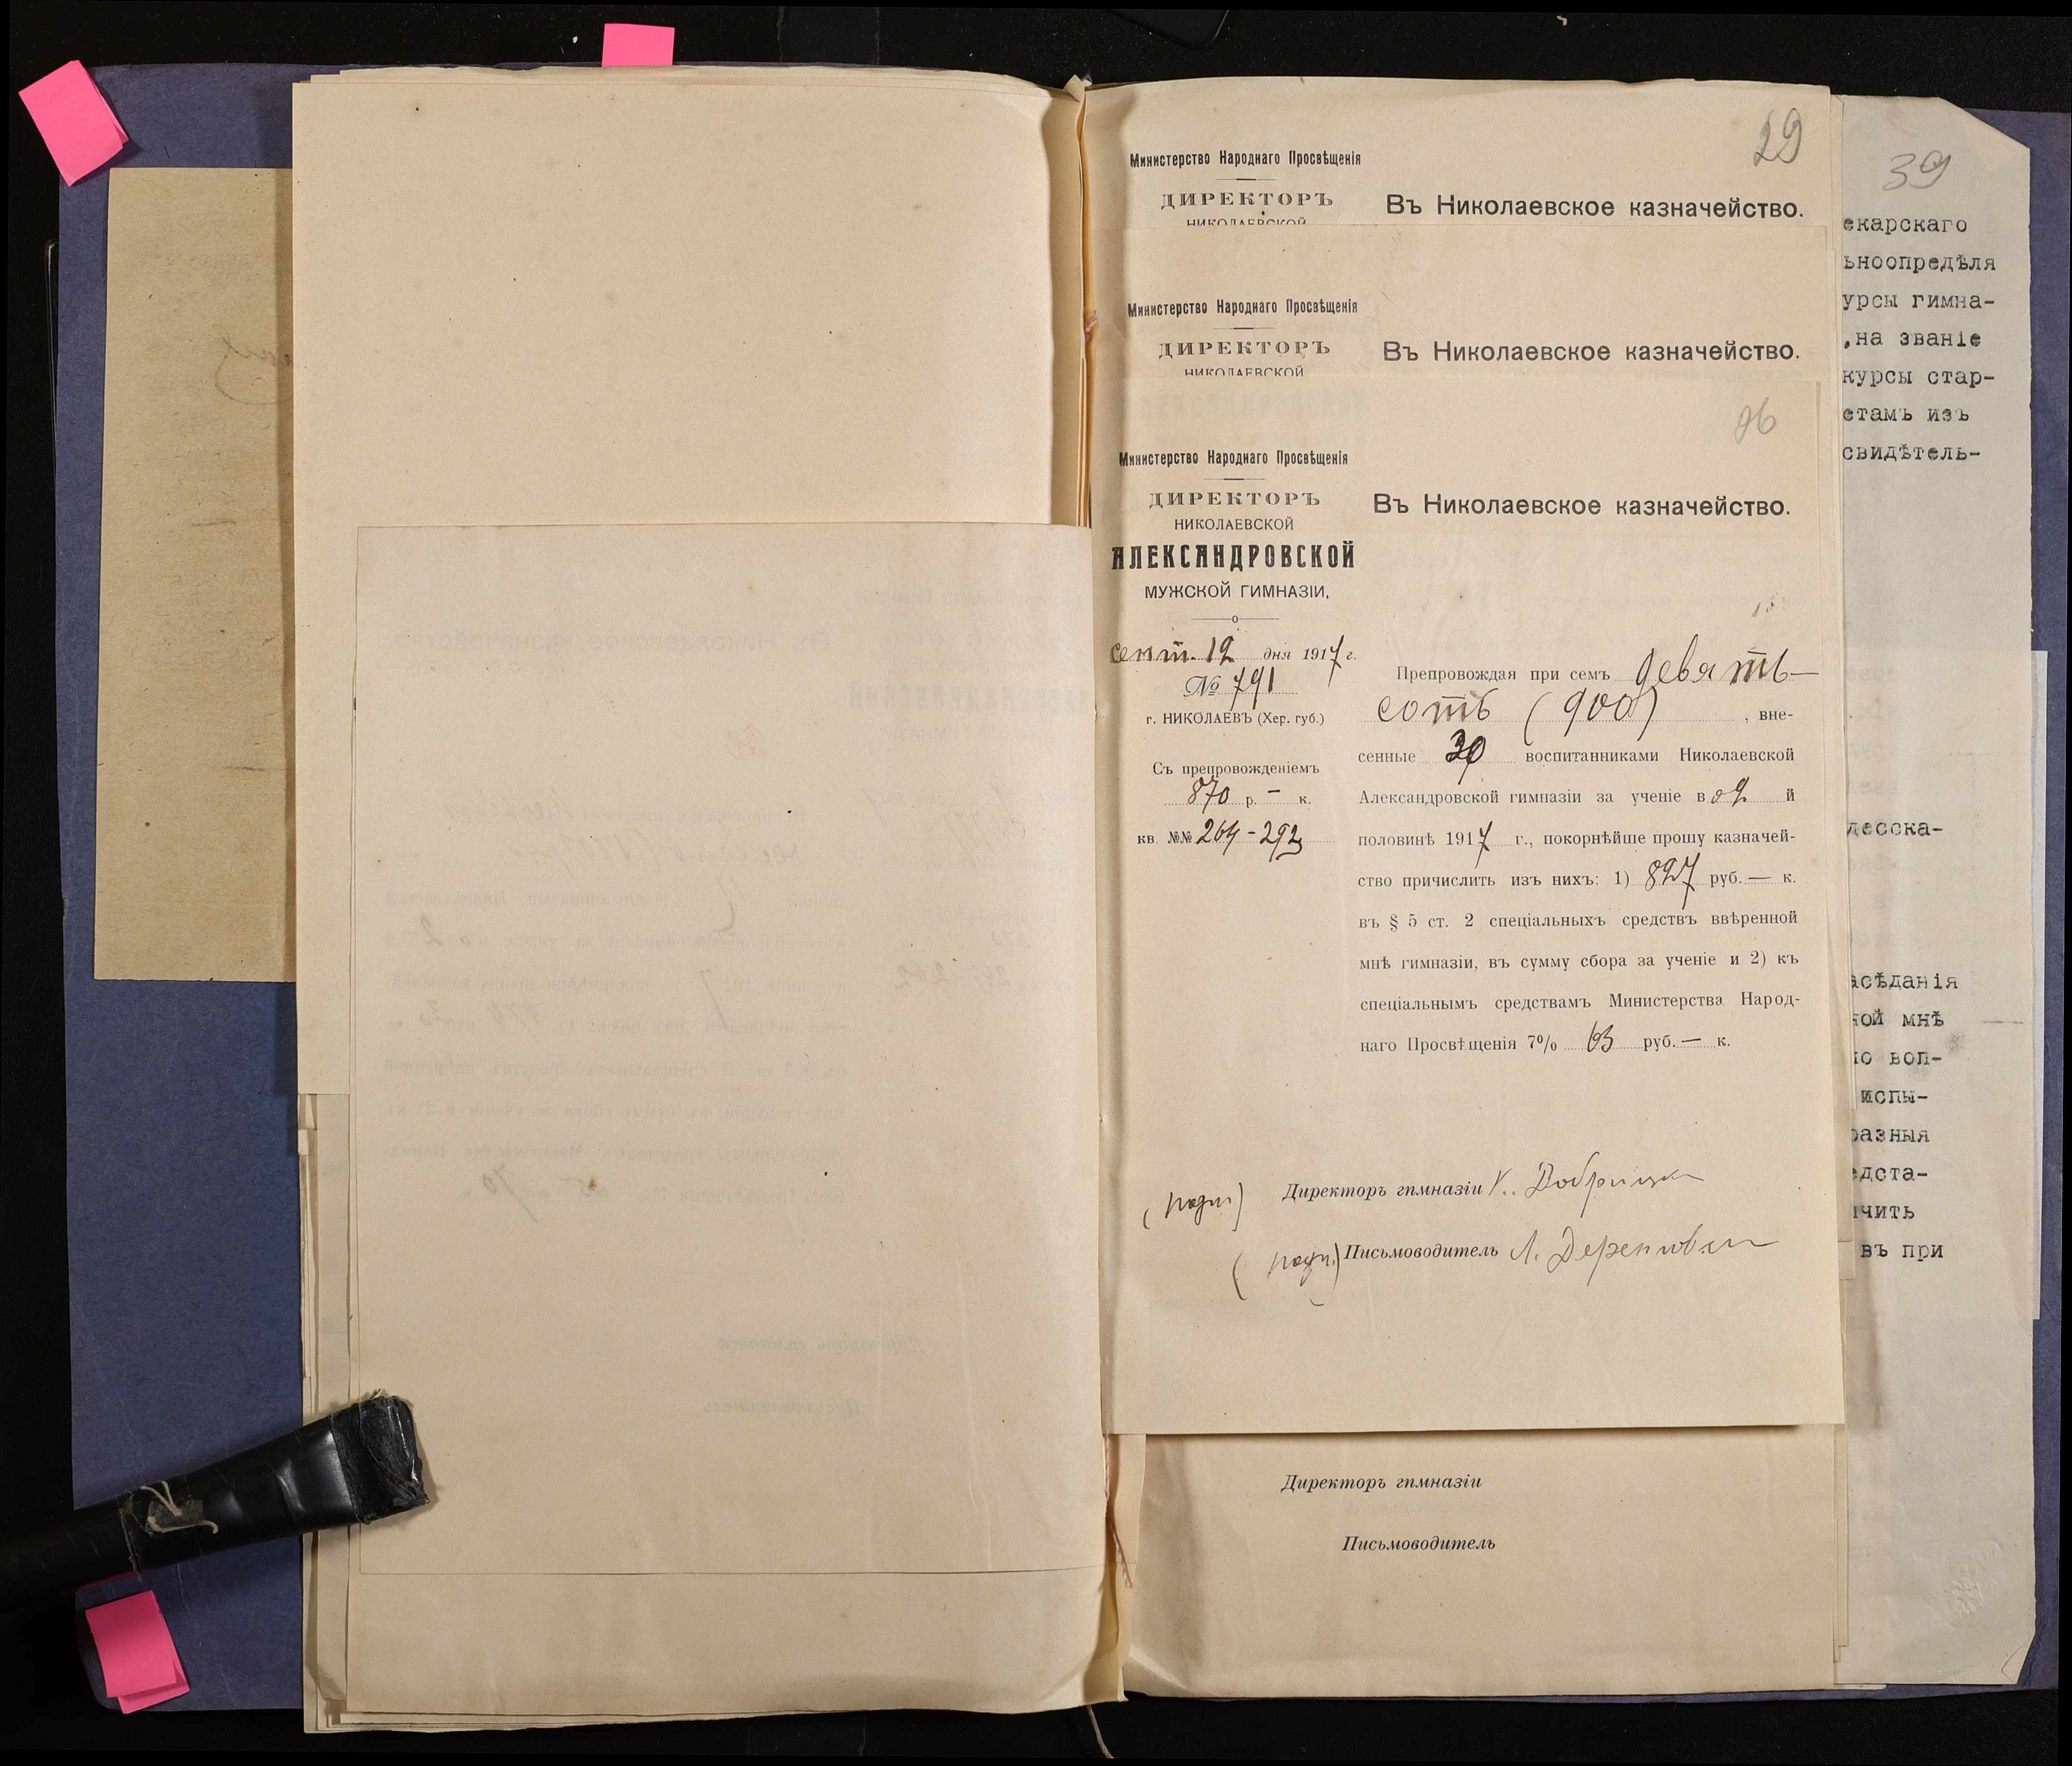 29
Министерство Народнаго Просвѣщенія
ДИРЕКТОРЪ
НИКОЛАЕВСКОЙ
Въ Николаевское казначейство.
Министерство Народнаго Просвѣщенія
ДИРЕКТОРЪ
НИКОЛАЕВСКОЙ
Въ Николаевское казначейство.
Министерство Народнаго Просвѣщенія
ДИРЕКТОРЪ
НИКОЛАЕВСКОЙ
АЛЕКСАНДРОВСКОЙ
МУЖСКОЙ ГИМНАЗІИ.
сент. 12 дня 1917 г.
№ 791
г. НИКОЛАЕВЪ (Хер. губ.)
Съ препровожденіемъ
870 р. – к.
кв. №№ 264-292
Въ Николаевское казначейство.
Препровождая при семъ девять-
сотъ (900) , вне-
сенные 30 воспитанниками Николаевской
Александровской гимназіи за ученіе в о 2 й
половинѣ 1917 г., покорнѣйше прошу казначей-
ство причислить изъ нихъ: 1) 827 руб. — к.
въ § 5 ст. 2 спеціальныхъ средствъ ввѣренной
мнѣ гимназіи, въ сумму сбора за ученіе и 2) къ
спеціальнымъ средствамъ Министерства Народ-
наго Просвѣщенія 7% 63 руб. — к.
(подп) Директоръ гимназіи
(подп.) Письмоводитель
Директоръ гимназіи
Письмоводитель
39
екарскаго
ьноопредѣля
урсы гимна-
,на званіе
курсы стар-
етамъ изъ
свидѣтель-
десска-
асѣданія
ной мнѣ
но воп-
испы-
разныя
едста-
ичить
въ при